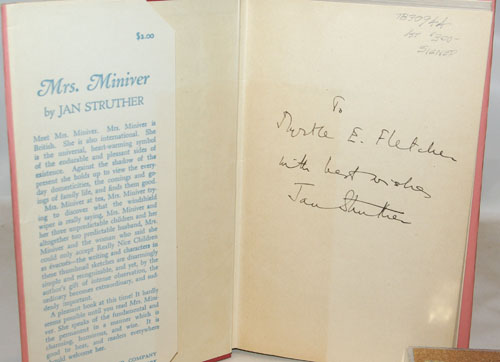 $2.00
Mrs. Miniver
by JAN STRUTHER
Meet Mrs. Miniver. Mrs. Miniver is
British. She is also international. She
is the universal, heart-warming symbol
of the endurable and pleasant sides of
existence. Against the shadow of the
present she holds up to view the every-
day domesticities, the comings and go-
ings of family life, and finds them good.
Mrs. Miniver at tea, Mrs. Miniver try-
ing to discover what the windshield
wiper is really saying, Mrs. Miniver and
her three unpredictable children and her
altogether too predictable husband, Mrs.
Miniver and the woman who said she
could only accept Really Nice Children
as evacuees—the writing and characters in
these thumbnail sketches are disarmingly
simple and recognizable, and yet, by the
author's gift of intense observation, the
ordinary becomes extraordinary, and sud-
denly important.
A pleasant book at this time! It hardly
seems possible until you read Mrs. Mini
ver. She speaks of the fundamental and
the permanent in a manner which is
charming, humorous, and wise. It is
good to hear, and readers everywhere
will welcome her.
COMPANY
AT $300-
SIGNED
To
Myrtle E. Fletcher
with best wishes
Jan Struther